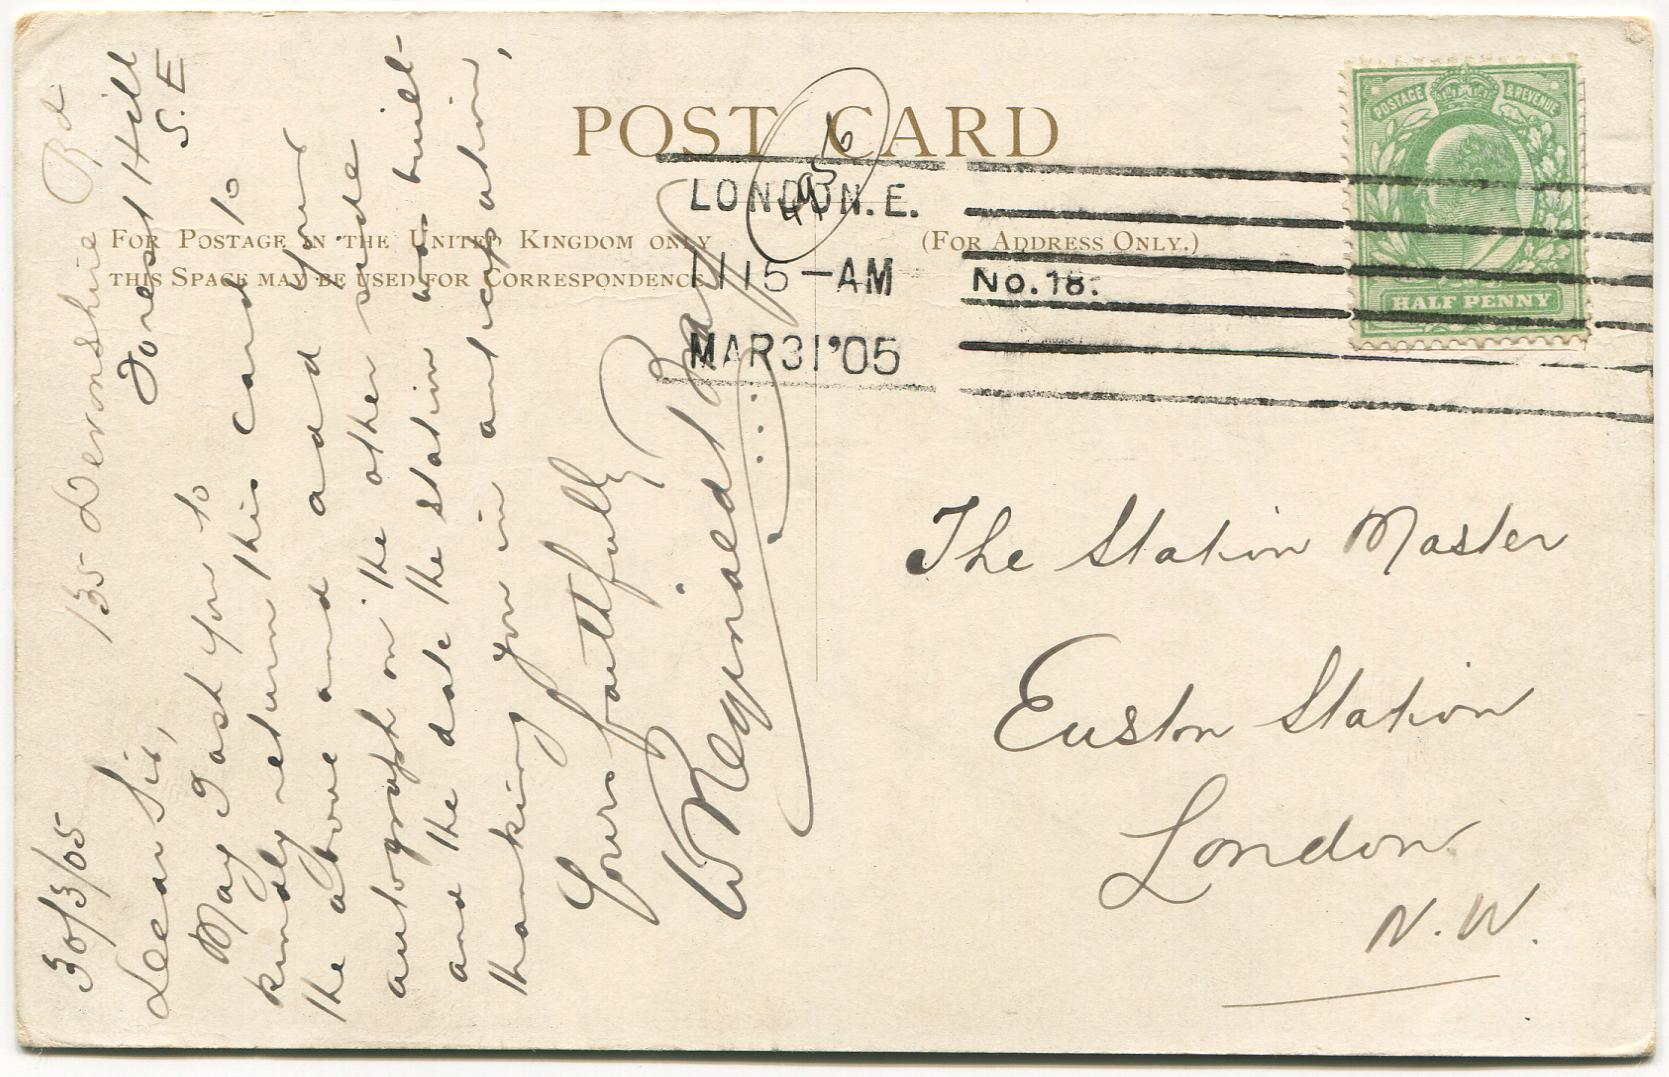 POST CARD
FOR POSTAGE IN THE UNITED KINGDOM ONLY
THIS SPACE MAY BE USED FOR CORRESPONDENCE
(FOR ADDRESS ONLY.)
LONDON. N.E.
11 15 - AM
MAR 31 '05
No. 18.
POSTAGE & REVENUE
HALF PENNY
135 Devonshire Rd
Forest Hill
S.E
30/3/05
Dear Sir,
May I ask you to
kindly return this card to
the above and add your
autograph on the other side
and the date the station was built
thanking you in anticipation,
Yours faithfully
W Reginald
The Station Master
Euston Station
London
N.W.